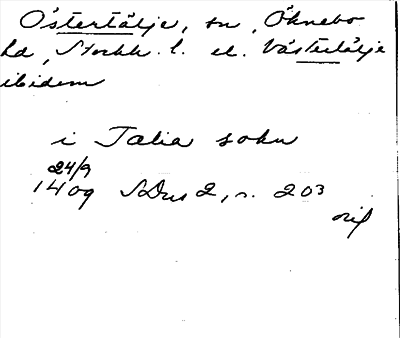 Östertälje, sn, Öknebo
hd, Stockh. l. el. Västertälje
ibidem
i Talia sokn
24/9
1409 SDns 2, s. 203
orig